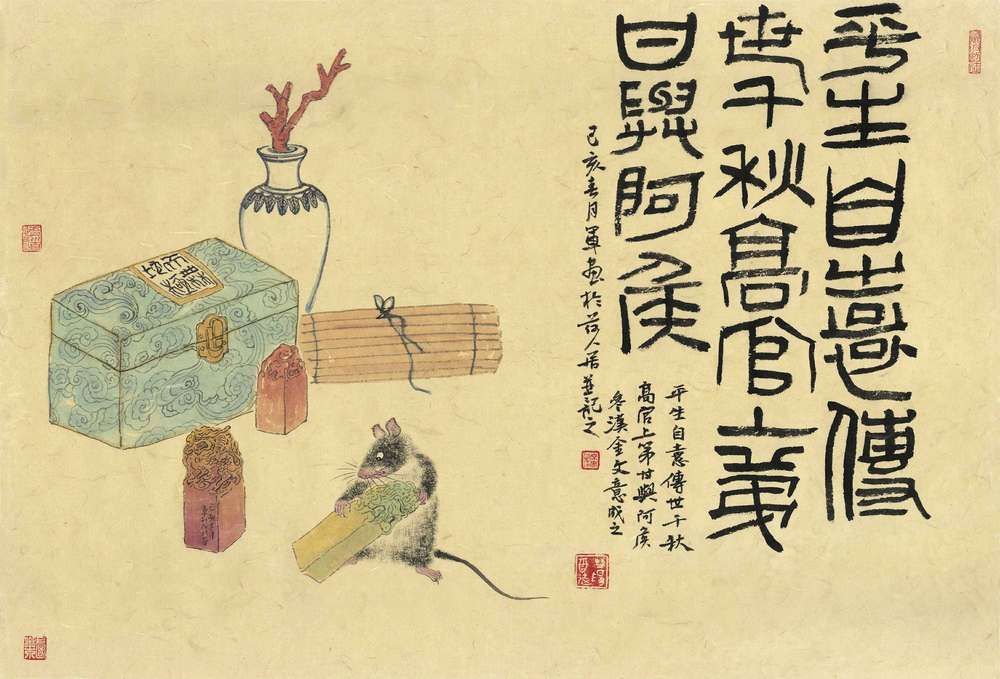 平生自憙傳
世千秋高官上第
甘與阿侯
己亥春月軍畫於人居並記之
平生自憙傳世千秋
高官上第甘與阿侯
參漢金文意成之